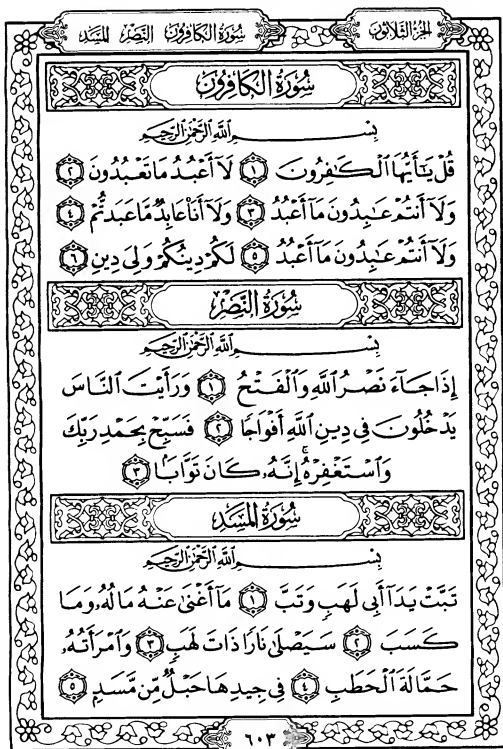 سُورَةُ الكَافِرُونَ النَّصْرِ المَسَد
الجُزْءُ الثَّلَاثُونَ
سُورَةُ الكَافِرُونَ
بِسْمِ اللَّهِ الرَّحْمَٰنِ الرَّحِيمِ
قُلْ يَٰٓأَيُّهَا ٱلْكَٰفِرُونَ ١ لَآ أَعْبُدُ مَا تَعْبُدُونَ ٢
وَلَآ أَنتُمْ عَٰبِدُونَ مَآ أَعْبُدُ ٣ وَلَآ أَنَا۠ عَابِدٌ مَّا عَبَدتُّمْ ٤
وَلَآ أَنتُمْ عَٰبِدُونَ مَآ أَعْبُدُ ٥ لَكُمْ دِينُكُمْ وَلِىَ دِينِ ٦
سُورَةُ النَّصْرِ
بِسْمِ اللَّهِ الرَّحْمَٰنِ الرَّحِيمِ
إِذَا جَآءَ نَصْرُ ٱللَّهِ وَٱلْفَتْحُ ١ وَرَأَيْتَ ٱلنَّاسَ
يَدْخُلُونَ فِى دِينِ ٱللَّهِ أَفْوَاجًا ٢ فَسَبِّحْ بِحَمْدِ رَبِّكَ
وَٱسْتَغْفِرْهُ ۚ إِنَّهُۥ كَانَ تَوَّابًۢا ٣
سُورَةُ المَسَد
بِسْمِ اللَّهِ الرَّحْمَٰنِ الرَّحِيمِ
تَبَّتْ يَدَآ أَبِى لَهَبٍ وَتَبَّ ١ مَآ أَغْنَىٰ عَنْهُ مَالُهُۥ وَمَا
كَسَبَ ٢ سَيَصْلَىٰ نَارًا ذَاتَ لَهَبٍ ٣ وَٱمْرَأَتُهُۥ
حَمَّالَةَ ٱلْحَطَبِ ٤ فِى جِيدِهَا حَبْلٌ مِّن مَّسَدٍۭ ٥
٦٠٣